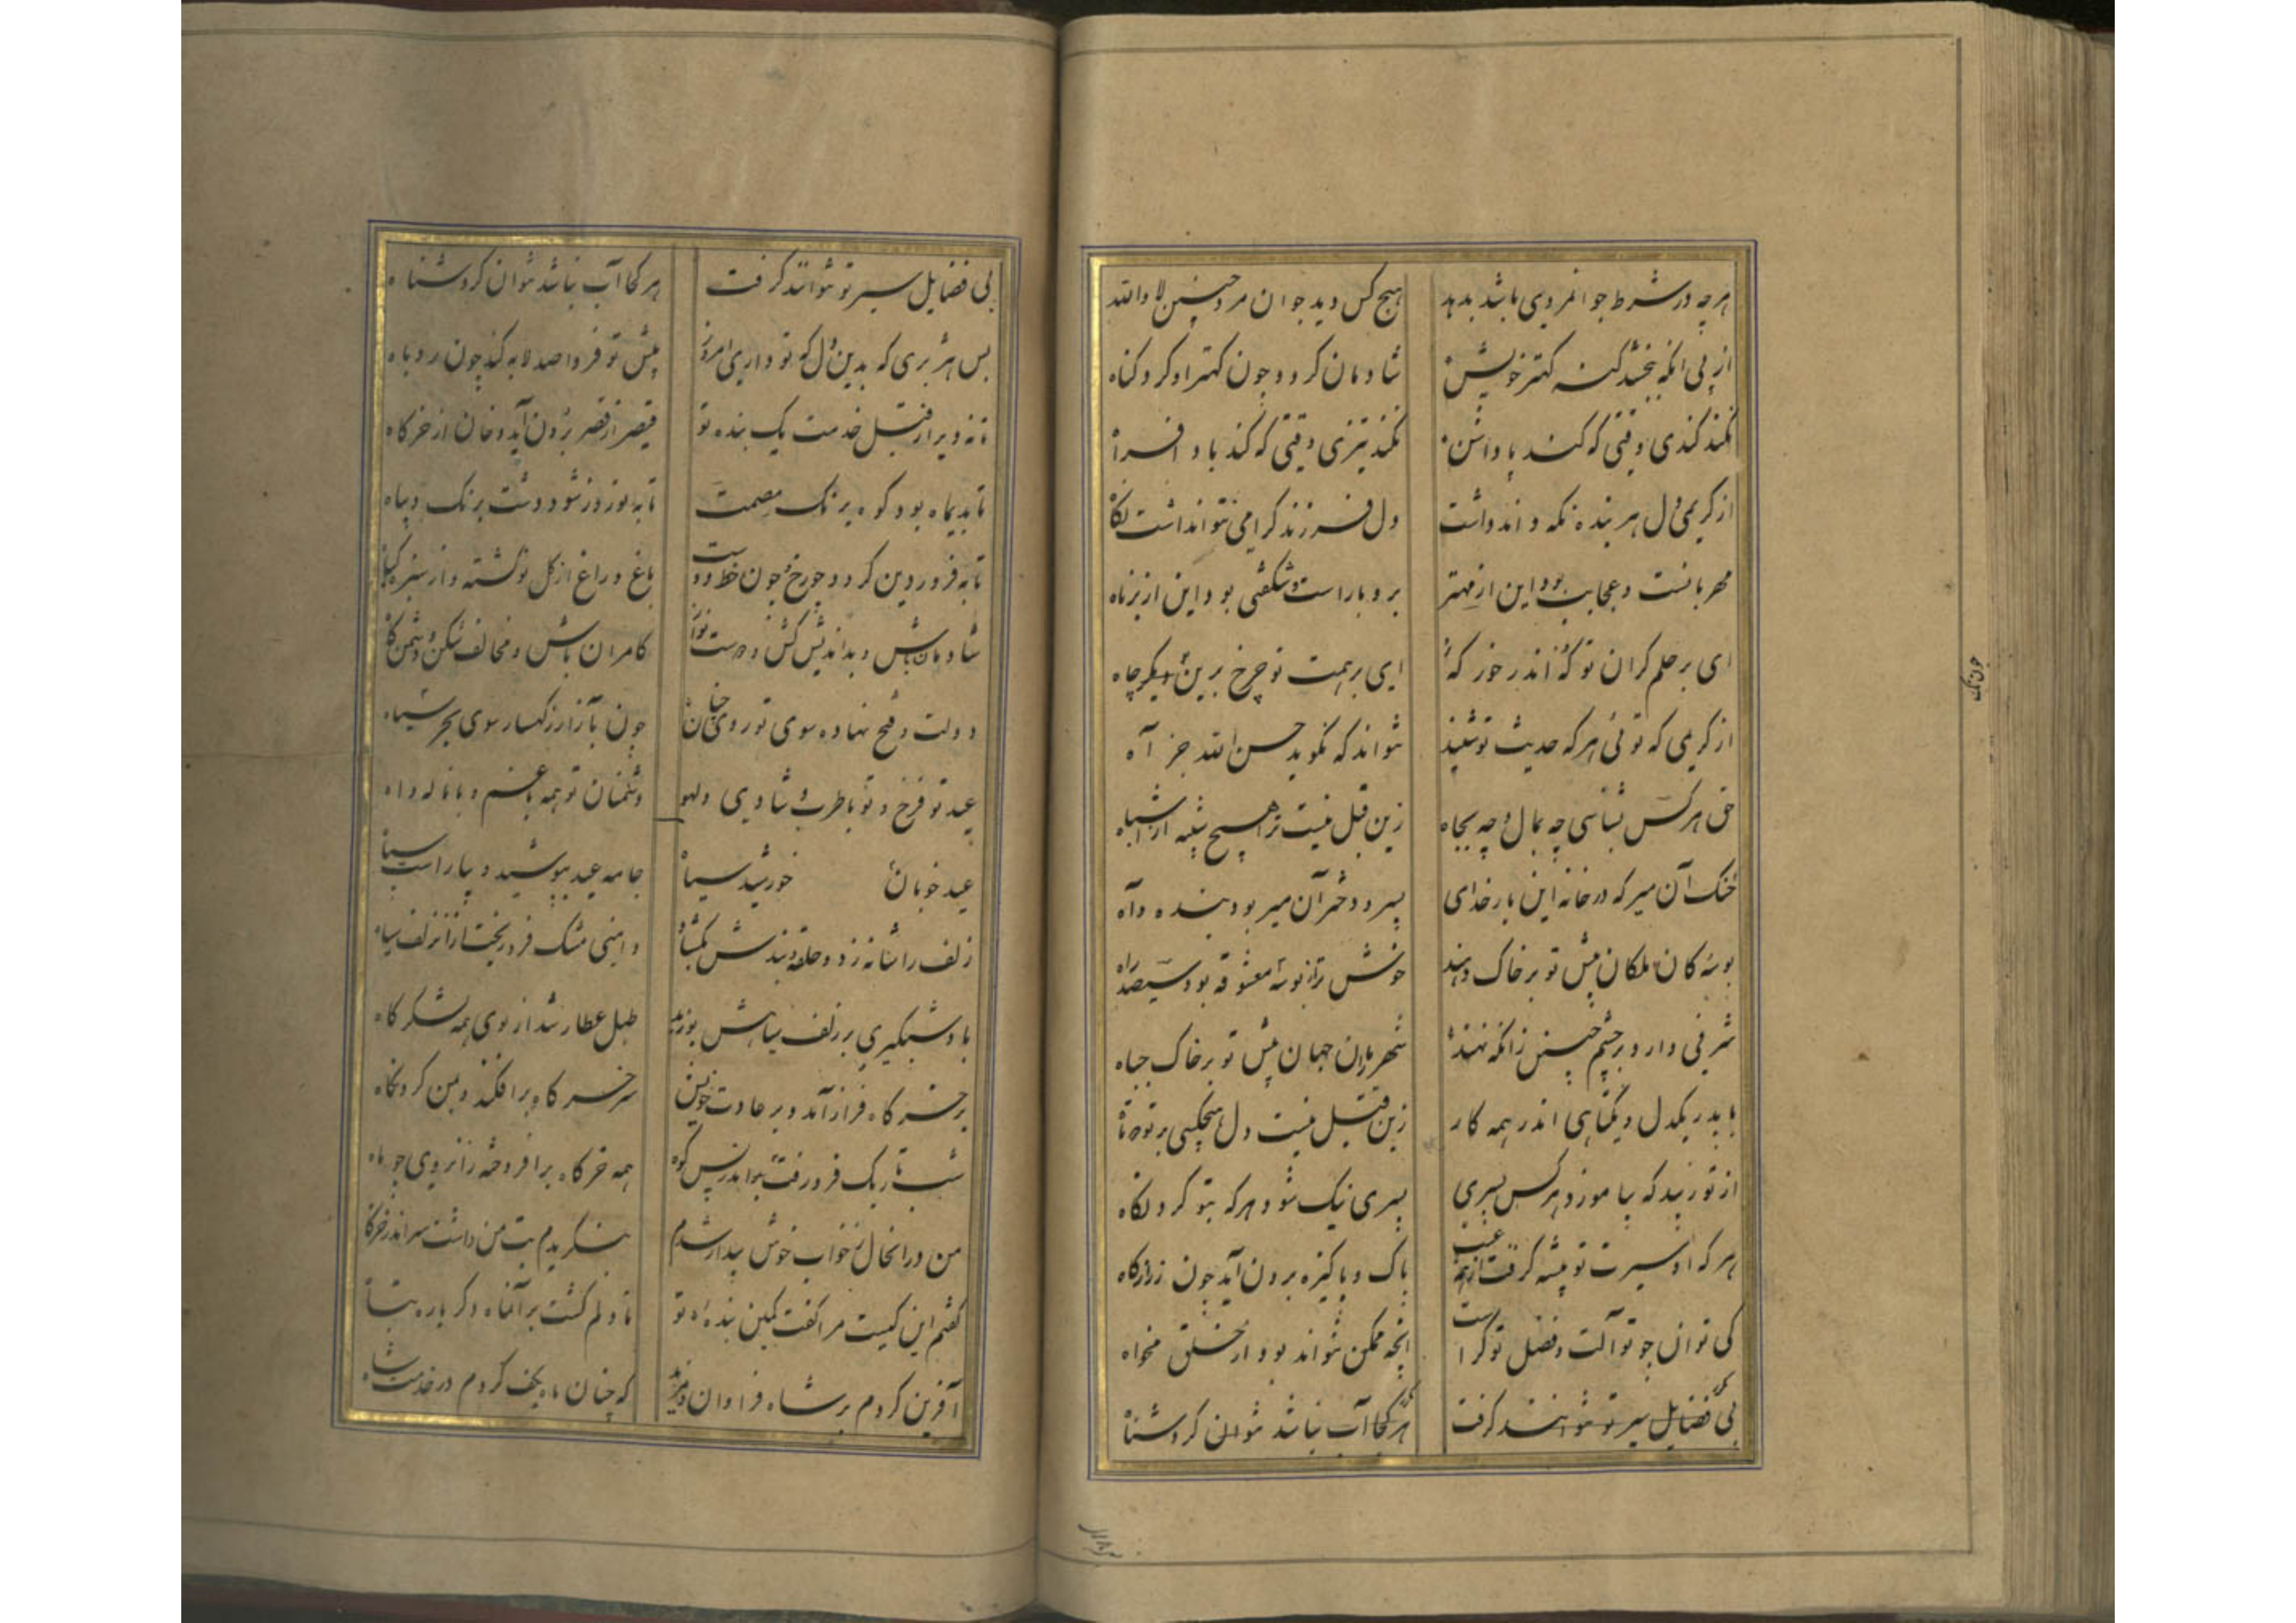 هرچه در شرط جوانمردی باشد بدهد هیچ کس دید جوان مرد چنین لا والله
از پی آنکه ببخشد گنه کهتر خویش شادمان گردد چون کهتر او کرد گناه
نکند کندی وقتی که کند پاداشن نکند تیزی وقتی که کند باد افراه
از کریمی دل هر بنده نگه داند داشت دل فرزند گرامی نتواند داشت نگاه
مهربانست و عجایب بود این از مهتر بردبار است و شگفتی بود این از برناه
ای بر حلم گران تو که اندر خور که ای بر همت تو چرخ برین دیگر چاه
از کریمی که توئی هر که حدیث تو شنید نتواند که نگوید حسن الله جز آه
حق هر کس بشناسی چه بمال و چه بجاه زین قبل نیست ترا هیچ شبیه از اشباه
خنک آن میر که در خانه این بارخدای پسر و دختر آن میر بود بنده و داه
بوسه کان ملکان پیش تو بر خاک دهند خوش تر از بوسه معشوقه بود سیصد راه
شرفی دارد بر چشم چنین زانکه نهند شهریاران جهان پیش تو بر خاک جباه
با پدر یکدل و یکتاهی اندر همه کار زین قبل نیست دل هیچکسی بر تو دوتاه
از تو زیبد که بیاموزد هر کس پسری پسری نیک شود هر که بتو کرد نگاه
هر که او سیرت تو پیشه گرفت از همه عیب پاک و پاکیزه برون آید چون زر از گاه
کی توان جو تو آلت و فضل تو کراست آنچه ممکن نتواند بود از خلق مخواه
بی فضایل سیر تو نتوانند گرفت هر کجا آب نباشد نتوان کرد شناه
بی فضایل سیر تو نتوانند گرفت هر کجا آب نباشد نتوان کرد شناه
بس هژبری که بدین دل که تو داری امروز پیش تو فردا صد لابه کند چون روباه
تا نه دیر از قبل خدمت یک بنده تو قیصر از قصر برون آید و خان از خرگاه
تا بدیماه بود کوه برنگ مصمت تا به نوروز شود دشت برنگ دیباه
تا به فروردین گردد چو رخ و چون خط دوست باغ و راغ از گل نو گشته و از سبزه گیاه
شادمان باش و بداندیش کش و دوست نواز کامران باش و مخالف شکن و دشمن کاه
دولت و فتح نهاده سوی تو روی چنان چون بآزار ز کهسار سوی بحر شیاه
عید تو فرخ و تو با طرب و شادی و لهو دشمنان تو همه با غم و با ناله و آه
عید خوبان خورشید سپاه جامه عید بپوشید و بیاراست سپاه
زلف را شانه زد و حلقه و بندش بگشاد دامنی مشک فرو ریخت از آن زلف سیاه
باد شبگیری بر زلف سیاهش بوزید طبل عطار شد از بوی همه لشکرگاه
بر خرگاه فراز آمد و بر عادت خویش سر خرگاه برافکند و بمن کرد نگاه
شب تاریک فرو رفت اندر پس کوه همه خرگاه برافروخته زان روی چو ماه
من در آنحال ز خواب خوش بیدار شدم بنگریدم بت من داشت سر اندر خرگاه
گفتم این کیست مرا گفت کمین بنده تو تا دلم گشت بر آن ماه دگر باره تباه
آفرین کردم بر شاه فراوان و سزید که چنان ماه بکف کردم در خدمت شاه
چون نیک